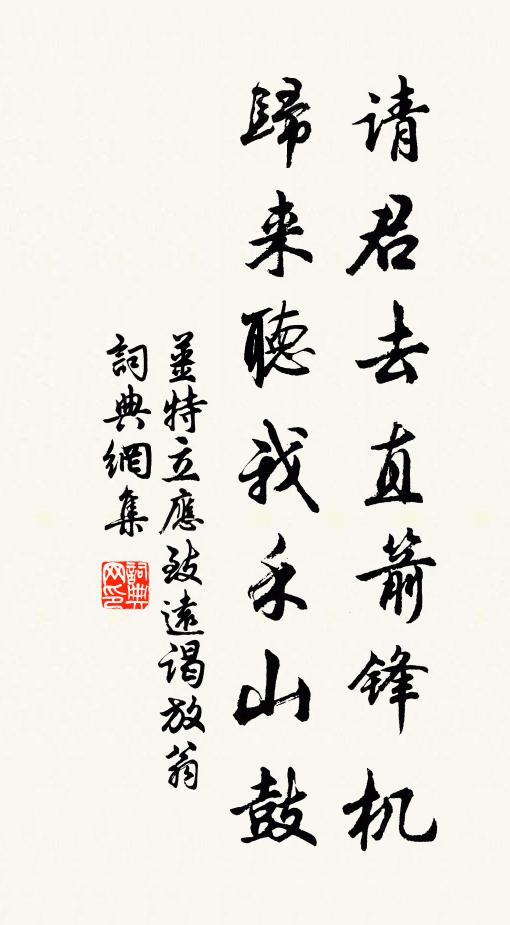 请君去直箭锋机
歸来聽我禾山鼓
薑特立應致遠谒放翁
詞典網集
詞典
网印